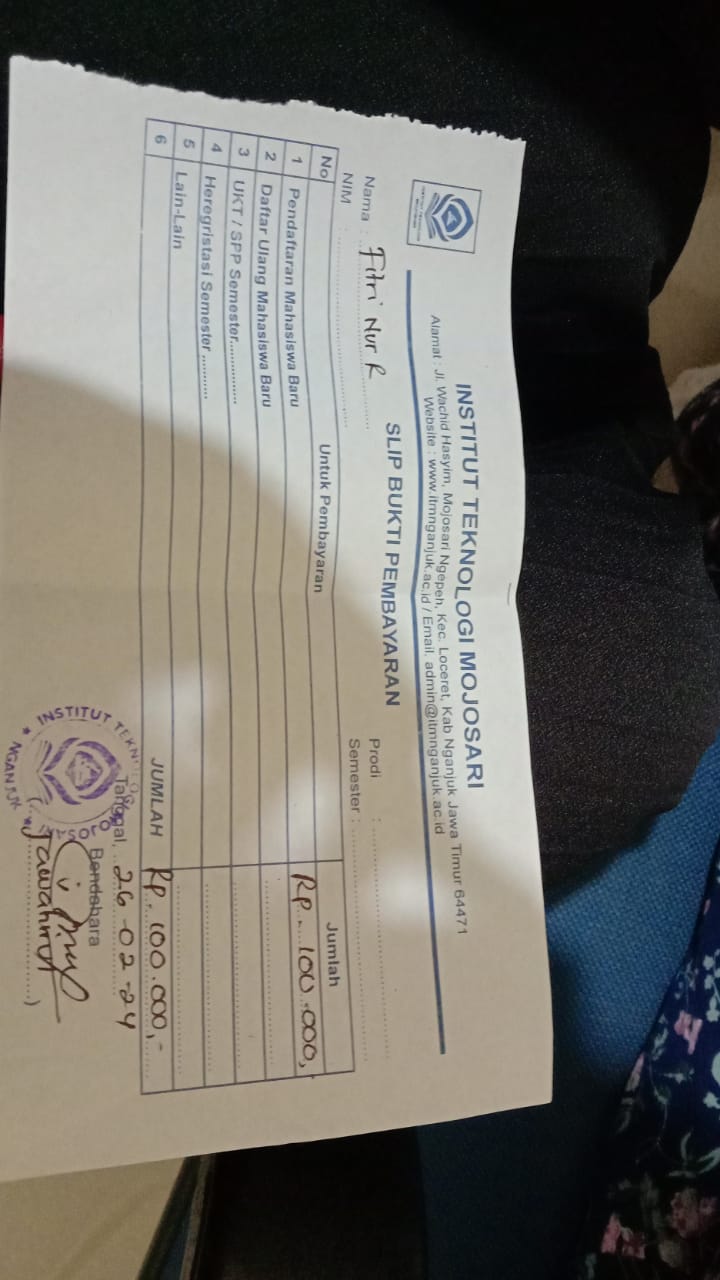 INSTITUT TEKNOLOGI MOJOSARI
Alamat : Jl. Wachid Hasyim, Mojosari Ngepeh, Kec. Loceret, Kab Nganjuk Jawa Timur 64471
Website : www.itmnganjuk.ac.id / Email. admin@itmnganjuk.ac.id
SLIP BUKTI PEMBAYARAN
Nama : Fitri Nur R Prodi :
NIM : Semester :
No Untuk Pembayaran Jumlah
1 Pendaftaran Mahasiswa Baru Rp. 100.000,
2 Daftar Ulang Mahasiswa Baru
3 UKT / SPP Semester..............
4 Heregristasi Semester ...........
5 Lain-Lain
6 JUMLAH Rp. 100.000,-
Tanggal, 26-02-24
Bendahara
INSTITUT TEKNOLOGI
NGANJUK